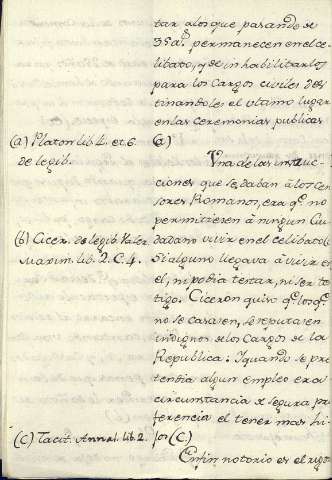 tar a los que pasando de
35 a.s permanecen en el ce-
libato, y de inhabilitarlos
para los Cargos civiles des
tinandoles el ultimo lugar
en las ceremonias publicas
(a) Platon lib. 4. et. 6. (a)
de legib.
Una de las instruc-
ciones que se daban à los Cen
sores Romanos, era q.e no
permitiesen à ningun Ciu
(b) Cicer. de legib. Valer dadano vivir en el celibato (b)
Maxim. lib. 2. C. 4. Si alguno llegava à vivir en
el, ni podia testar, ni ser tes
tigo. Ciceron quiso q.e los q.e
no se casasen, se reputasen
indignos de los Cargos de la
Republica: Y quando se pre
tendia algun empleo era
circunstancia de segura pre
ferencia el tener mas hi-
(C) Tacit. Annal. lib. 2. jos (C.)
En fin notorio es el rigor